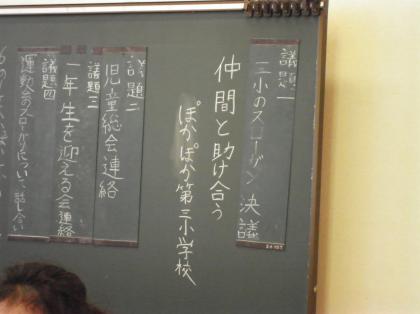 議題一
三小のスローガン決議
仲間と助け合う
ぽかぽか第三小学校
議題二
児童総会連絡
議題三
一年生を迎える会連絡
議題四
運動会のスローガンについて、話し合い